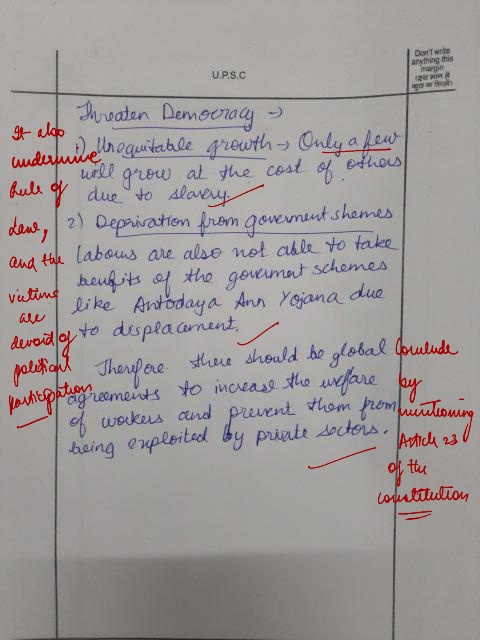 Don't write
anything this
margin
(इस भाग में
कुछ ना लिखें)
U.P.S.C
Threaten Democracy →
1) Unequitable growth → Only a few
will grow at the cost of others
due to slavery.
2) Deprivation from goverment shemes
labours are also not able to take
benefits of the goverment schemes
like Antodaya Ann Yojana due
to displacement.
Therefore there should be global
agreements to increase the welfare
of workers and prevent them from
being exploited by private sectors.
It also
undermine
Rule of
Law,
and the
victims
are
devoid of
political
participation
Conclude
by
mentioning
Article 23
of the
constitution